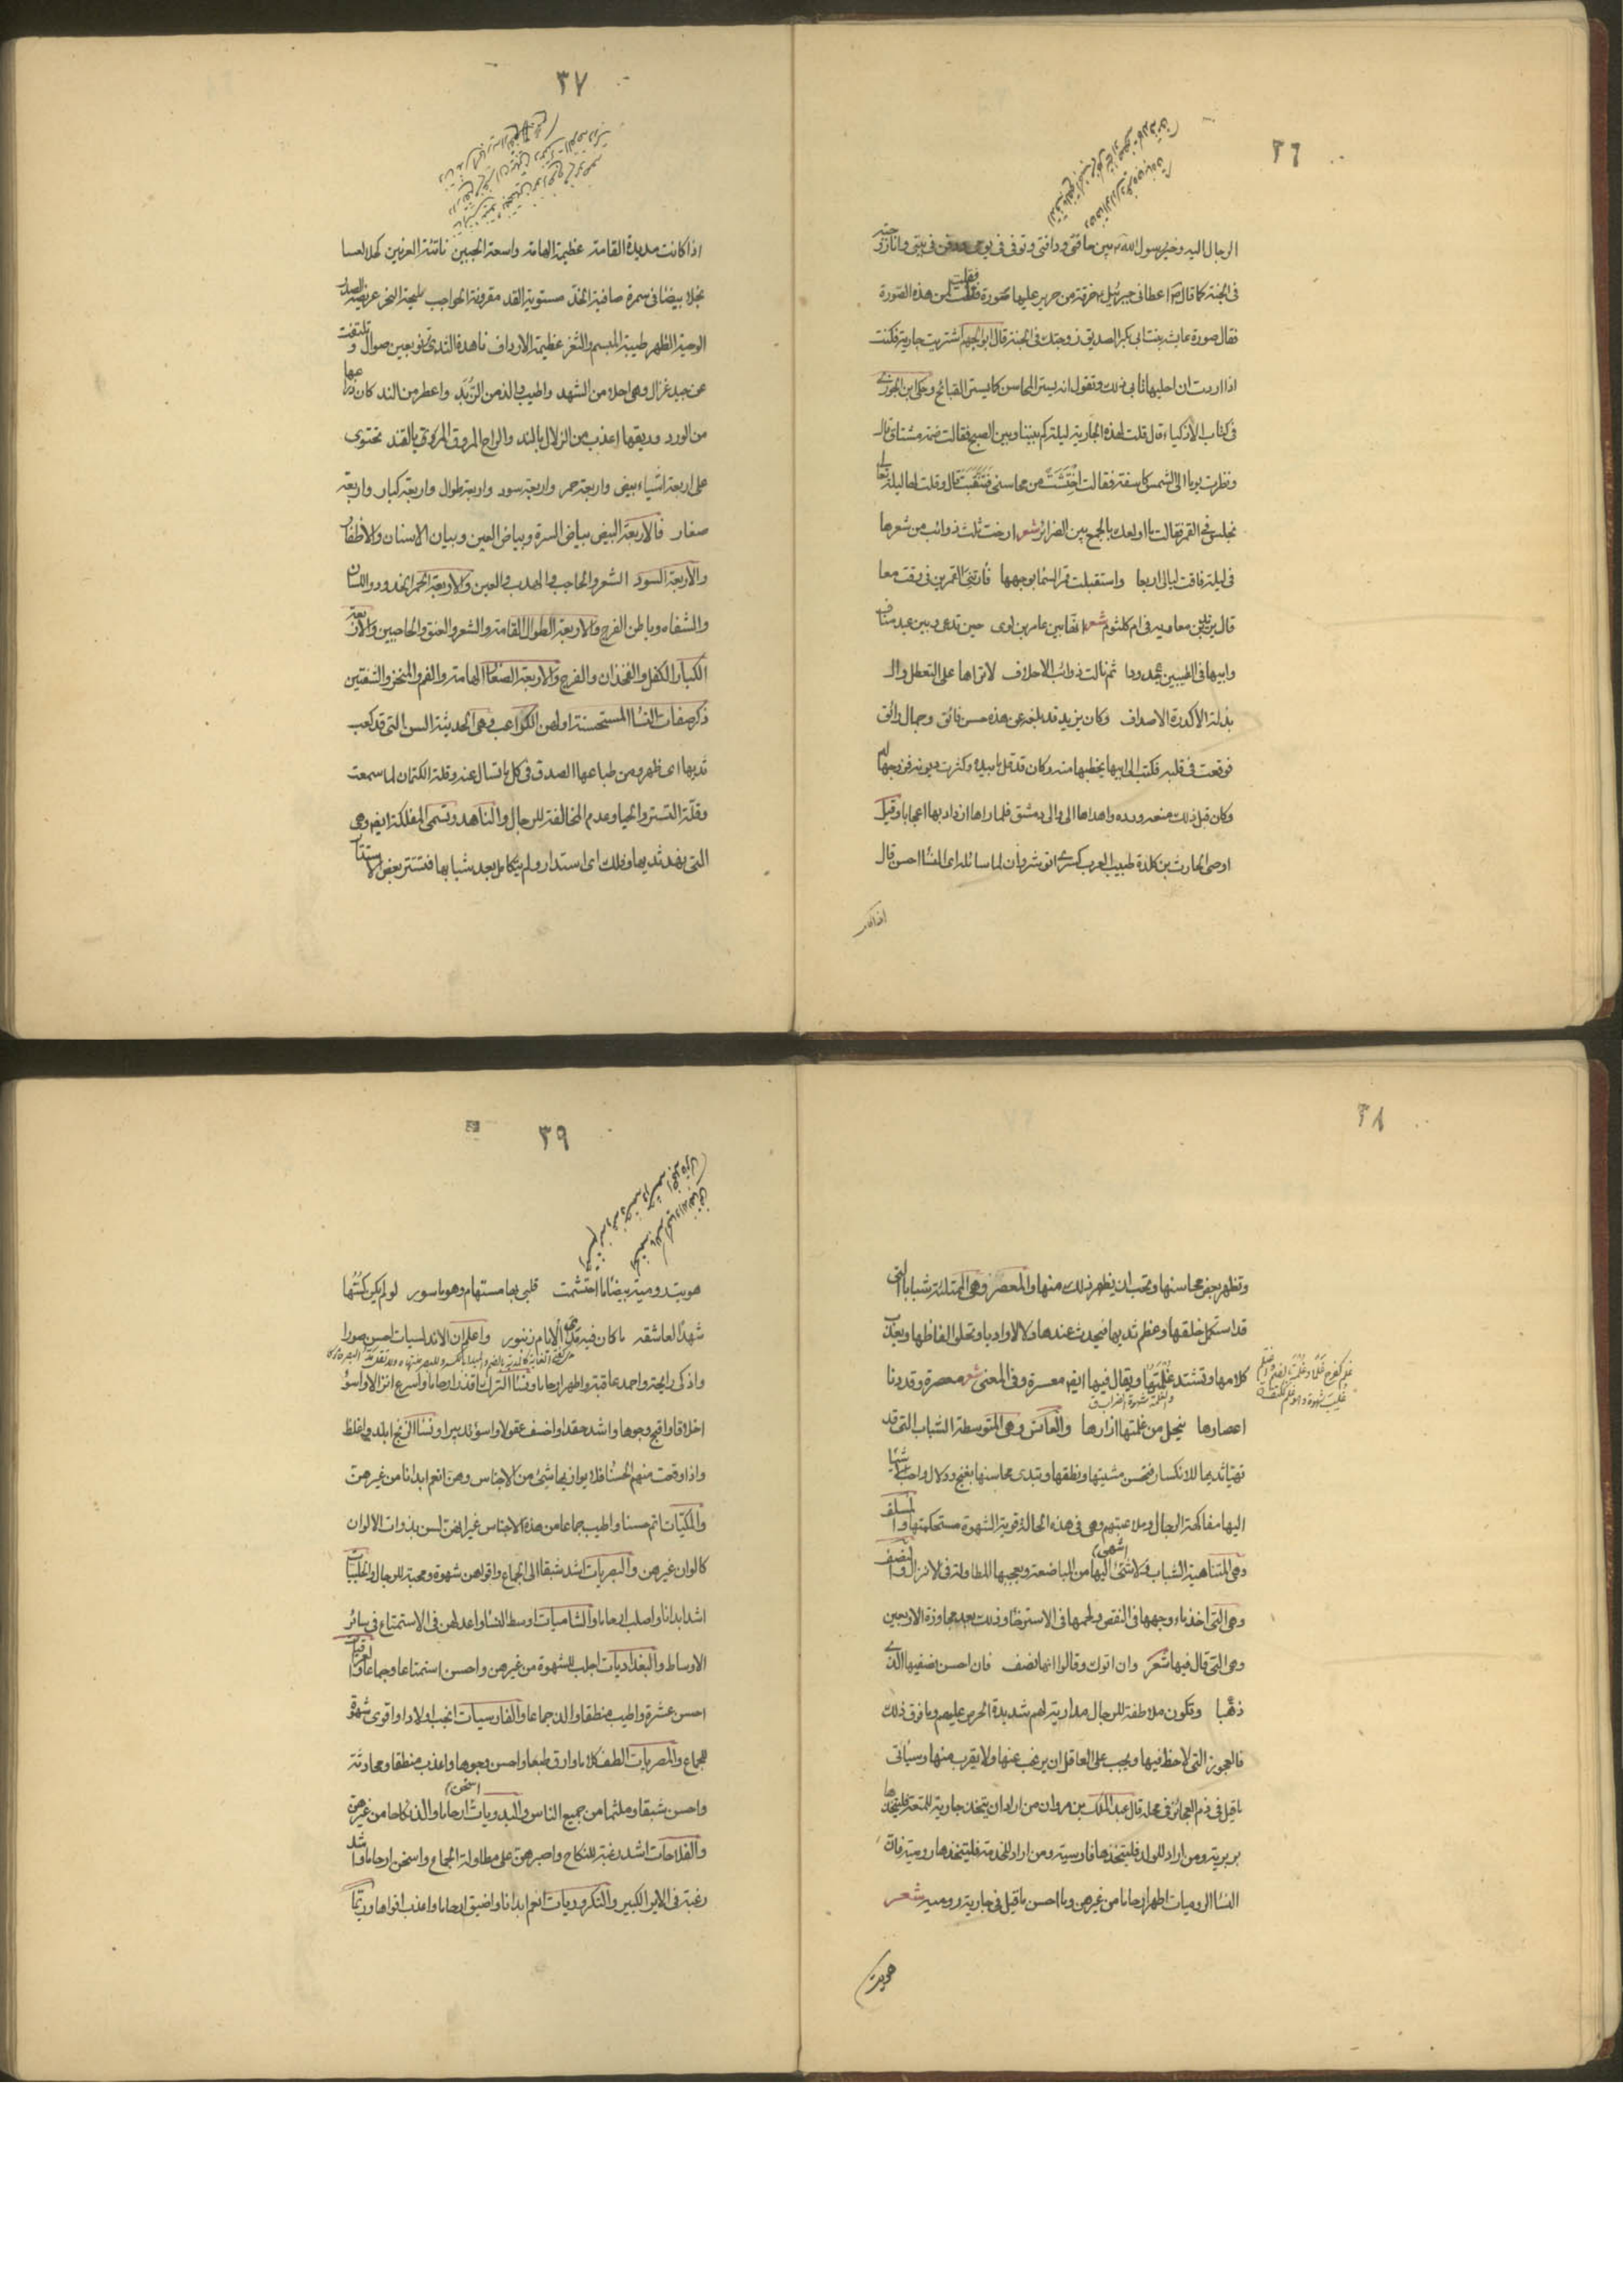 ٣٦
الرجال اليه وخير رسول الله بين حاقنتي وذاقنتي وتوفى في يومي ودفن في بيتي وانا زوجته
في الجنة كما قال اعطاني جبرئيل خرقة من حرير عليها صورة فقلت لمن هذه الصورة
فقال صورة عايشه بنت ابي بكر الصديق زوجتك في الجنة قال ابو الجهم اشتريت جارية فكنت
اذا اردت ان احليها تابى ذلك وتقول انه يستر المحاسن كما يستر القبائح وحكى ابن الجوزي
في كتاب الاذكياء قال قلت لهذه الجارية ليلة كم بيننا وبين الصبح فقالت ضمة مشتاق قال
ونظرت يوما الى الشمس كاسفة فقالت احتشمت من محاسني فتنقبت قال وقلت لها ليلة تعالى
نجلس في القمر فقالت ما اولعك بالجمع بين الضرائر شعر ارخت ثلث ذوائب من شعرها
في ليلة فاقت ليالي اربعا واستقبلت قمر السما بوجهها فارتني القمرين في وقت معا
قال يزيد بن معاويه في ام كلثوم شعر انها بين عامر بن لوى حين تدعى وبين عبد مناف
وابيها في الطيبين جدودا ثم نالت ذوائب الاحلاف لا تراها على التعطل والـ
بذلة الا كدرة الاصداف وكان يزيد قد بلغه عن هذه حسن فائق وجمال رائق
فوقعت في قلبه فكتب الى ابيها يخطبها منه وكان قد قل ما بيده وكثرت ديونه فزوجها له
وكان قبل ذلك منعه ورده واهداها الى والى دمشق فلما راها ازداد بها اعجابا وقيل
اوصى الحارث بن كلدة طبيب العرب كسرى انوشروان لما سائله اى النسا احسن قال
اذا كانت
٣٧
اذا كانت مديدة القامة عظيمة الهامة واسعة الجبين ناتئة العرنين كحلا لعسا
نجلا بيضا في سمرة صافية الخد مستوية القد مقرونة الحواجب مليحة النحر عريضة الصدر
الوحية الظهر طيبة المبسم والثغر عظيمة الارداف ناهدة الثدي ترنو بعين صوال وتلتفت
عن جيد غزال وهى احلا من الشهد واطيب والذ من الزبد واعطر من الند كان دمعها
من الورد وريقها اعذب من الزلال بالمند والراح المروق المزوق بالقند تحتوى
على اربعة اشياء بيض واربعة حمر واربعة سود واربعة طوال واربعة كبار واربعة
صغار فالاربعة البيض بياض السرة وبياض العين وبياض الاسنان والاظفار
والاربعة السود الشعر والحاجب والهدب والعين والاربعة الحمر الخدود واللسان
والشفاه وباطن الفرج والاربعة الطوال القامة والشعر والعنق والحاجبين والاربعة
الكبار الكفل والفخذان والفرج والاربعة الصغار الهامة والفم والمنخر والشفتين
ذكر صفات النسا المستحسنة اولهن الكواعب وهى الحديثة السن التى قد كعب
ثديها اى ظهر ومن طباعها الصدق في كل ما تسال عنه وقلة الكتمان لما سمعت
وقلة التستر والحيا وعدم المخالفة للرجال والناهد وتسمى المفلكة ايضا وهى
التى نهد ثديها وفلك اى استدار ولم يتكامل بعد شبابها فتستتر بعض الاستتار
٣٨
وتظهر بعض محاسنها وتحب ان يظهر ذلك منها والمعصر وهى الممتلئة شبابا التى
قد استكمل خلقها وعظم ثديها فيحدث عندها دلالا وادبا وتحلو الفاظها ويعذب
كلامها وتشتد غلمتها ويقال فيها ايضا معسرة وفى المعنى شعر معصرة وقد دنا
والغلمة شهوة الضراب ق
اعصارها ينحل من غلمتها ازارها والعانس وهى المتوسطة الشباب التى قد
تهيا ثديها للانكسار فتحسن مشيتها ونطقها وتبدى محاسنها بغنج ودلال واحب شيئا
اليها مفاكهة الرجال وملاعبتهم وهى في هذه الحالة قوية الشهوة مستحكمتها والمسلف
وهى المتناهية الشباب فلا شئ اليها من المباضعة ويعجبها المطاولة في الانزال والنصف
وهى التى اخذ ماء وجهها في النقص ولحمها في الاسترخا وذلك بعد مجاوزة الاربعين
وهى التى قال فيها شعر وان اتوك وقالوا انها نصف فان احسن نصفيها الذى
ذهبا وتكون ملاطفة للرجال مدارية لهم شديدة الحرص عليهم وما فوق ذلك
فالعجوز التى لا حظ فيها ويجب على العاقل ان يرغب عنها ولا يقرب منها وسياتى
ما قيل في ذم العجائز في محله قال عبد الملك بن مروان من اراد ان يتخذ جارية للمتعة فليتخذها
بربرية ومن اراد للولد فليتخذها فارسية ومن اراد للخدمة فليتخذها رومية فان
النسا الروميات اطهر ارحاما من غيرهن وما احسن ما قيل في جارية روميه شعر
هويت
٣٩
هويت رومية بيضا ما احتشمت قلبى بها مستهام وهو ماسور لو لم يكن كسها
شهدا لعاشقه ما كان فيه مدى الايام زنبور واعلم ان الاندلسيات احسن صورا
واذكى رايحة واحمد عاقبة واطهر ارحاما ونسا الترك اقذر ارحاما واسرع انزالا واسؤ
اخلاقا واقبح وجوها واشد حقدا واضعف عقولا واسؤ تدبيرا ونسا الزنج ابلد واغلظ
واذا وقعت منهم الحسنا فلا يوازيها شئ من الاجناس وهن انعم ابدانا من غيرهن
والمكيات اتم حسنا واطيب جماعا من هذه الاجناس غير انهن لسن بذوات الالوان
كالوان غيرهن والبصريات اشد شبقا الى الجماع واقواهن شهوة ومحبة للرجال والحلبيات
اشد ابدانا واصلب ارحاما والشاميات اوسط النسا واعدلهن في الاستمتاع في سائر
الاوساط والبغداديات اجلب للشهوة من غيرهن واحسن استمتاعا وجماعا والعراقيات
احسن عشرة واطيب منطقا والذ جماعا والفارسيات انجب اولادا واقوى شهوة
للجماع والمصريات الطف كلاما وارق طبعا واحسن وجوها واعذب منطقا ومحادثة
واحسن شبقا وملثما من جميع الناس والبدويات اسخن ارحاما والذ نكاحا من غيرهن
والفلاحات اشد رغبة للنكاح واصبرهن على مطاولة الجماع واسخن ارحاما واشد
رغبة في الاير الكبير والتكروريات انعم ابدانا واضيق ارحاما واعذب افواها وريقا